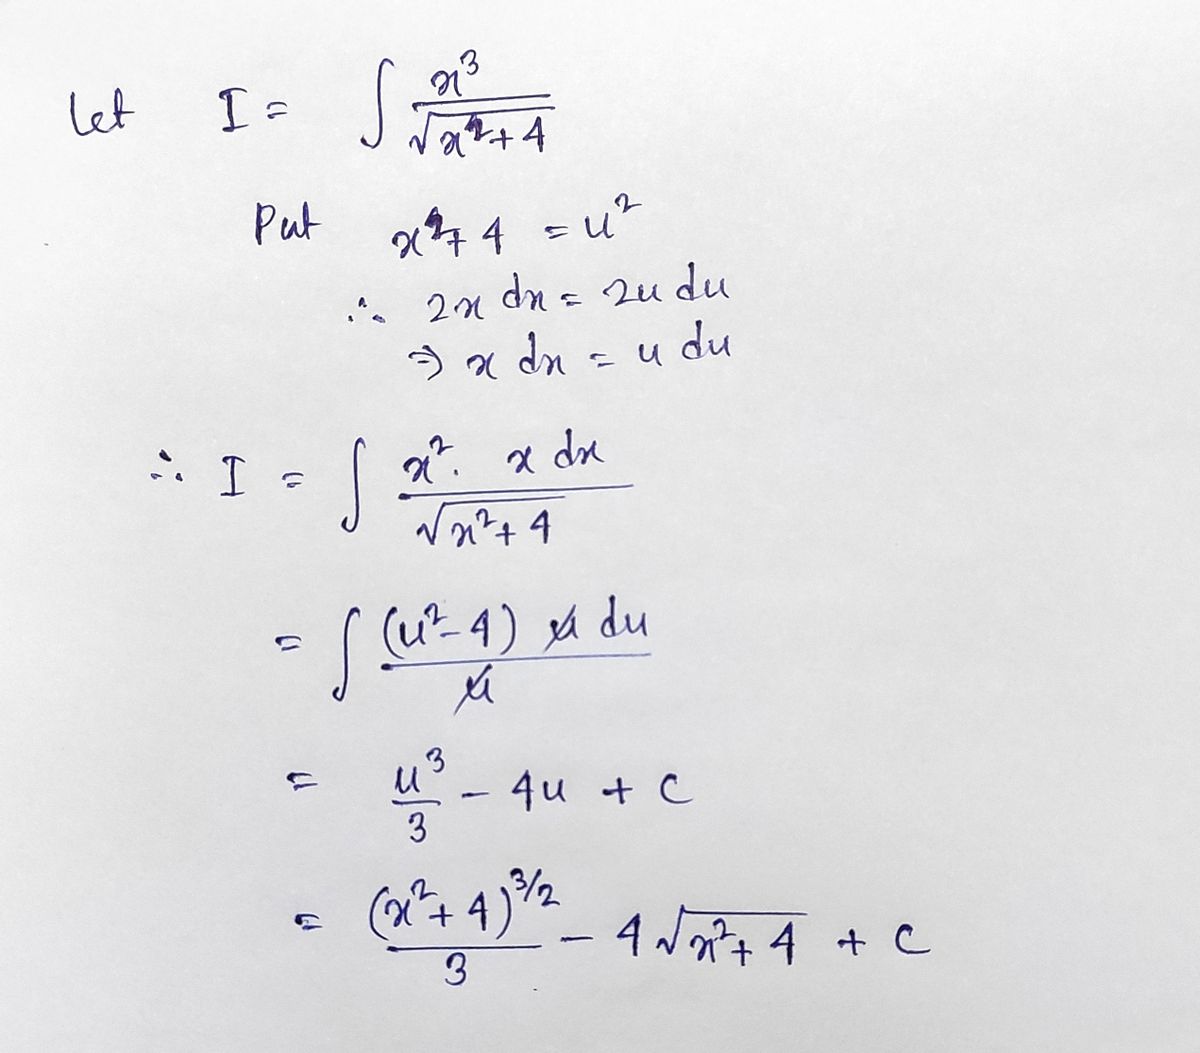 Let I = ∫ x³ / √(x²+4)
Put x²+4 = u²
∴ 2x dx = 2u du
⇒ x dx = u du
∴ I = ∫ x². x dx / √(x²+4)
= ∫ (u²-4) u du / u
= u³/3 - 4u + c
= (x²+4)^(3/2) / 3 - 4√(x²+4) + c